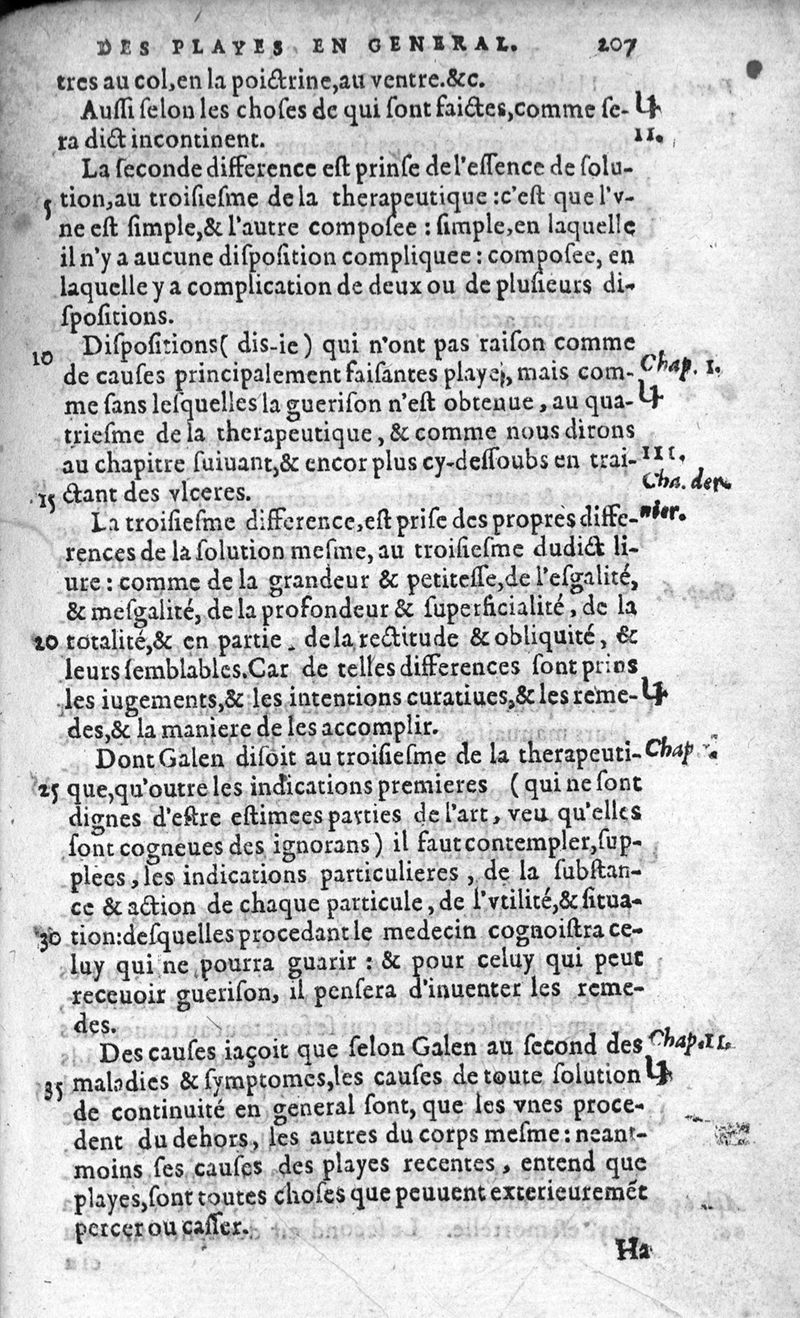 DES PLAYES EN GENERAL. 207
tres au col,en la poictrine,au ventre.&c.
Auſſi ſelon les choſes de qui ſont faictes,comme ſe-
ra dict incontinent. II.
La ſeconde difference eſt prinſe de l'eſſence de ſolu-
5 tion,au troiſieſme de la therapeutique :c'eſt que l'v-
ne eſt ſimple,& l'autre compoſee : ſimple,en laquelle
il n'y a aucune diſpoſition compliquee : compoſee, en
laquelle y a complication de deux ou de pluſieurs di-
ſpoſitions.
Diſpoſitions( dis-ie ) qui n'ont pas raiſon comme
10 de cauſes principalement faiſantes playes, mais com- Chap. I.
me ſans leſquelles la gueriſon n'eſt obtenue, au qua-
trieſme de la therapeutique, & comme nous dirons
au chapitre ſuiuant,& encor plus cy-deſſoubs en trai- III.
15 ctant des vlceres. Cha. der-
La troiſieſme difference,eſt priſe des propres diffe- nier.
rences de la ſolution meſme, au troiſieſme dudict li-
ure : comme de la grandeur & petiteſſe,de l'eſgalité,
& meſgalité, de la profondeur & ſuperficialité, de la
20 totalité,& en partie, de la rectitude & obliquité, &
leurs ſemblables.Car de telles differences ſont prins
les iugements,& les intentions curatiues,& les reme-
des,& la maniere de les accomplir.
Dont Galen diſoit au troiſieſme de la therapeuti- Chap
25 que,qu'outre les indications premieres (qui ne ſont
dignes d'eſtre eſtimees parties de l'art, veu qu'elles
ſont cogneues des ignorans) il faut contempler,ſup-
plees, les indications particulieres, de la ſubſtan-
ce & action de chaque particule, de l'vtilité,& ſitua-
30 tion:deſquelles procedant le medecin cognoiſtra ce-
luy qui ne pourra guarir : & pour celuy qui peut
receuoir gueriſon, il penſera d'inuenter les reme-
des.
Des cauſes iaçoit que ſelon Galen au ſecond des Chap.II.
35 maladies & ſymptomes,les cauſes de toute ſolution
de continuité en general ſont, que les vnes proce-
dent du dehors, les autres du corps meſme : neant-
moins ſes cauſes des playes recentes, entend que
playes,ſont toutes choſes que peuuent exterieuremēt
percer ou caſſer.
Ha